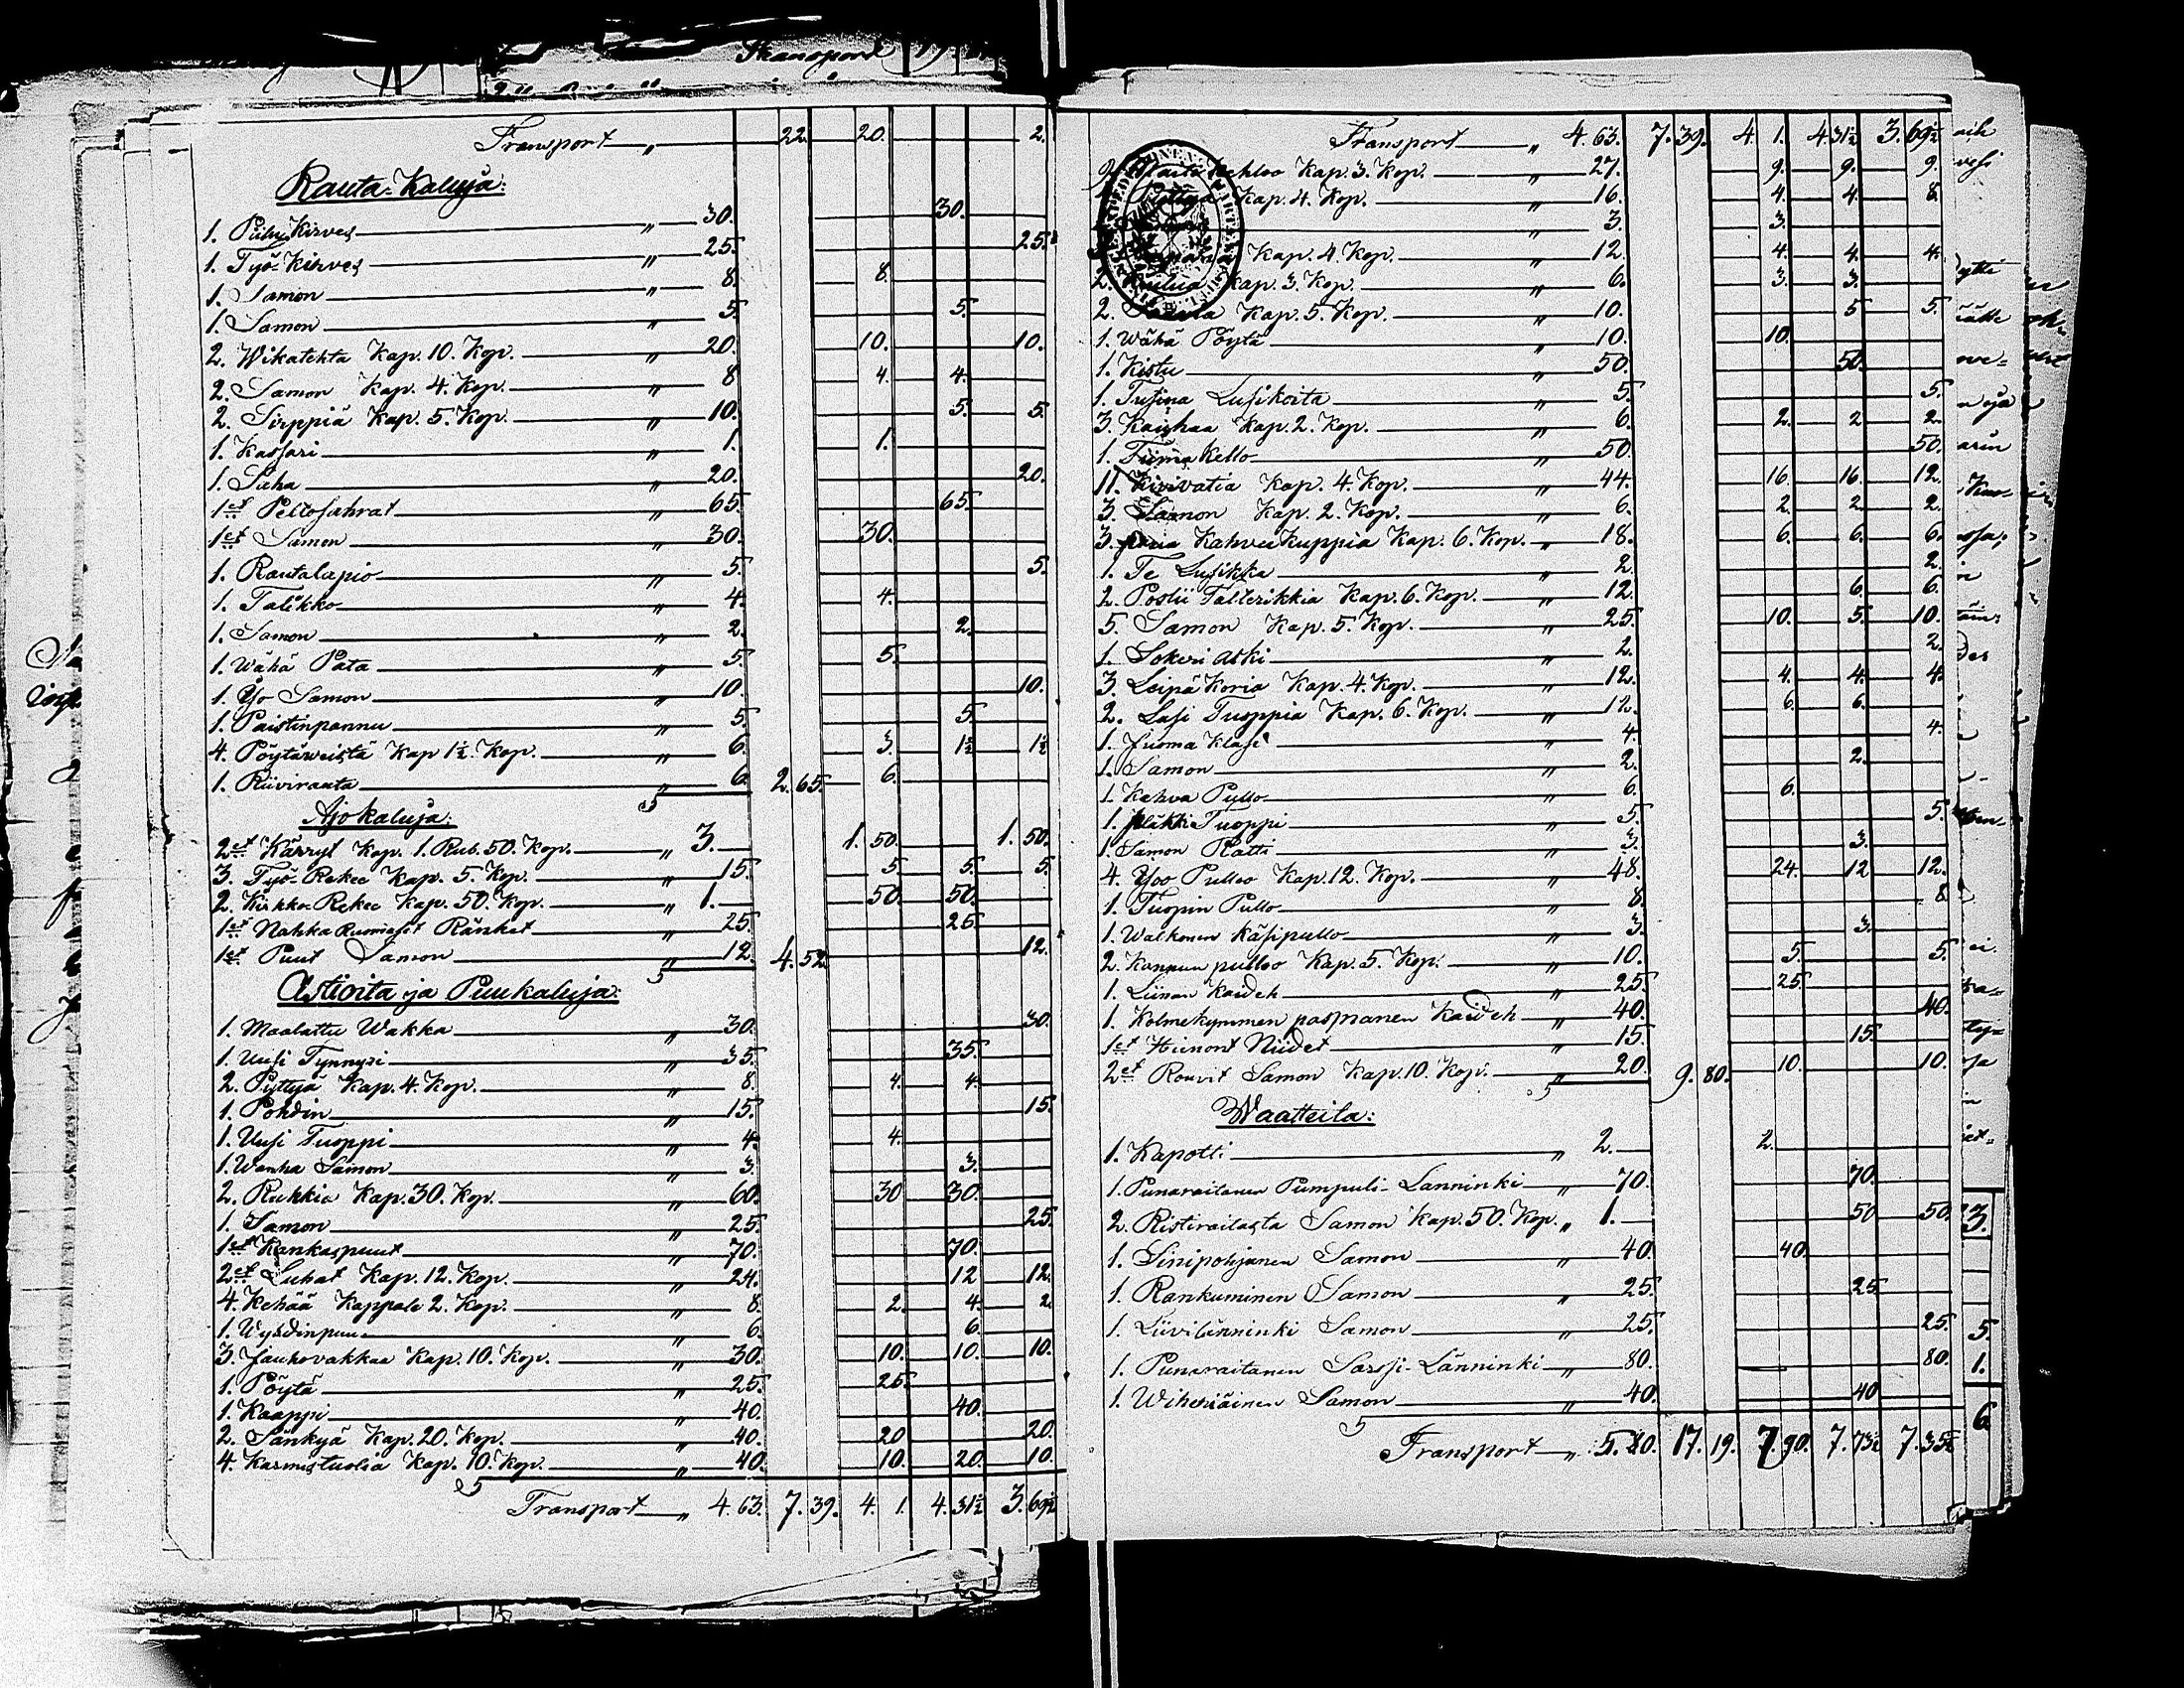 Transport „ 22. 20. 2.
Rauta-Kaluja:
1. Kirves „ 30. 30.
1. Työ-Kirves „ 25. 25.
1. Samon „ 8. 8.
1. Samon „ 5. 5.
2. Wikatehta Kap. 10. Kop. „ 20. 10. 10.
2. Samon Kap. 4. Kop. „ 8 4. 4.
2. Sirppiä Kap. 5. Kop. „ 10. 5. 5.
1. Kassari „ 1. 1.
1. Saha „ 20. 20.
1et Peltosahrat „ 65. 65.
1et Samon „ 30. 30.
1. Rautalapio „ 5. 5.
1. Talikko „ 4. 4.
1. Samon „ 2. 2.
1. Wähä Pata „ 5. 5.
1. Yo Samon „ 10. 10.
1. Paistinpannu „ 5. 5.
4. Pöytäveistä Kap 1½. Kop. „ 6. 3. 1½ 1½
1. Riiviraata „ 6. 2. 65. 6.
Ajokaluja:
2et Kärryt Kap. 1. Rub. 50. Kop. „ 3. 1. 50. 1. 50.
3. Työ-Rekee Kap. 5. Kop. „ 15. 5. 5. 5.
2. Kirkko-Rekee Kap. 50. Kop. „ 1. 50. 50.
1et Nahka Ruomaset Ränket „ 25. 25
1et Puut Samon „ 12. 4. 52 12.
Astioita ja Puukaluja:
1. Maalattu Wakka „ 30. 30.
1. Uusi Tynnyri „ 35. 35.
2. Pyttyä Kap. 4. Kop. „ 8. 4. 4.
1. Pohdin „ 15. 15.
1. Uusi Tuoppi „ 4. 4.
1. Wanha Samon „ 3. 3.
2. Rukkia Kap. 30. Kop. „ 60. 30 30.
1. Samon „ 25. 25.
1et Kankaspuut „ 70. 70.
2et Luhat Kap. 12. Kop. „ 24. 12 12.
4. Kehää Kappale 2. Kop. „ 8. 2. 4. 2.
1. Wysdinpuu „ 6. 6.
3. Jauhovakkaa Kap. 10. Kop. „ 30. 10. 10. 10.
1. Pöytä „ 25. 25.
1. Kaappi „ 40. 40.
2. Sänkyä Kap. 20. Kop. „ 40. 20 20.
4. Karmistuolia Kap. 10. Kop. „ 40. 10. 20. 10.
Transport „ 4. 63. 7. 39. 4. 1. 4. 31½ 3. 69½
Transport „ 4. 63. 7. 39. 4. 1. 4 31½ 3. 69½
9. Maito Kehloo Kap. 3. Kop. „ 27. 9. 9. 9.
Kap. 4. Kop. „ 16. 4. 4. 8.
„ 3. 3.
Kap. 4. Kop. „ 12. 4. 4. 4.
2. Kap. 3. Kop. „ 6. 3. 3.
2. Kap. 5. Kop. „ 10. 5 5.
1. Wähä Pöytä „ 10. 10.
1. Kistu „ 50. 50.
1. Tusina Lusikoita „ 5. 5.
3. Kaishaa Kap. 2. Kop. „ 6. 2. 2 2.
1. Tiima Kello „ 50. 50.
11. Kivivatia Kap. 4. Kop. „ 44. 16. 16. 12.
3. Saamon Kap. 2. Kop. „ 6. 2. 2. 2.
3. Kahvee Kuppia Kap. 6. Kop. „ 18. 6. 6. 6.
1. Te Lusikka „ 2. 2.
2. Poslii Tallerikkia Kap. 6. Kop. „ 12. 6. 6.
5. Samon Kap. 5. Kop. „ 25. 10. 5. 10.
1. Sokeri aski „ 2. 2.
3. Leipä Koria Kap. 4. Kop. „ 12. 4. 4. 4.
2. Lasi Tuoppia Kap. 6. Kop. „ 12. 6. 6.
1. Juoma Klasi „ 4. 4.
1. Samon „ 2. 2.
1. Kahva Pullo „ 6. 6.
1. Pläkki Tuoppi „ 5. 5.
1. Samon Ratti „ 3. 3.
4. Yoo Pulloo Kap. 12. Kop. „ 48. 24. 12 12.
1. Tuopin Pullo „ 8. 8
1. Walkonen Käsipullo „ 3. 3.
2. Kannun pulloo Kap. 5. Kop. „ 10. 5. 5.
1. Liinan Kaideh „ 25. 25.
1. Kolmekymmen pasmanen Kaideh „ 40. 40.
1et Hienont Niidet „ 15. 15.
2et Rouvit Samon Kap. 10. Kop. „ 20. 9. 80. 10. 10.
Waatteita:
1. Kapotti „ 2. 2.
1. Punaraitanen Pumpuli-Lanninki „ 70. 70.
2. Ristiraitasta Samon Kap. 50. Kop. „ 1. 50 50.
1. Sinipohjanen Samon „ 40. 40.
1. Rankuminen Samon „ 25. 25.
1. Liivilänninki Samon „ 25. 25.
1. Punaraitanen Sarssi-Länninki „ 80. 80.
1. Wiheriäinen Samon „ 40. 40
Transport „ 5. 80. 17. 19. 7. 90. 7. 73½ 7. 35½